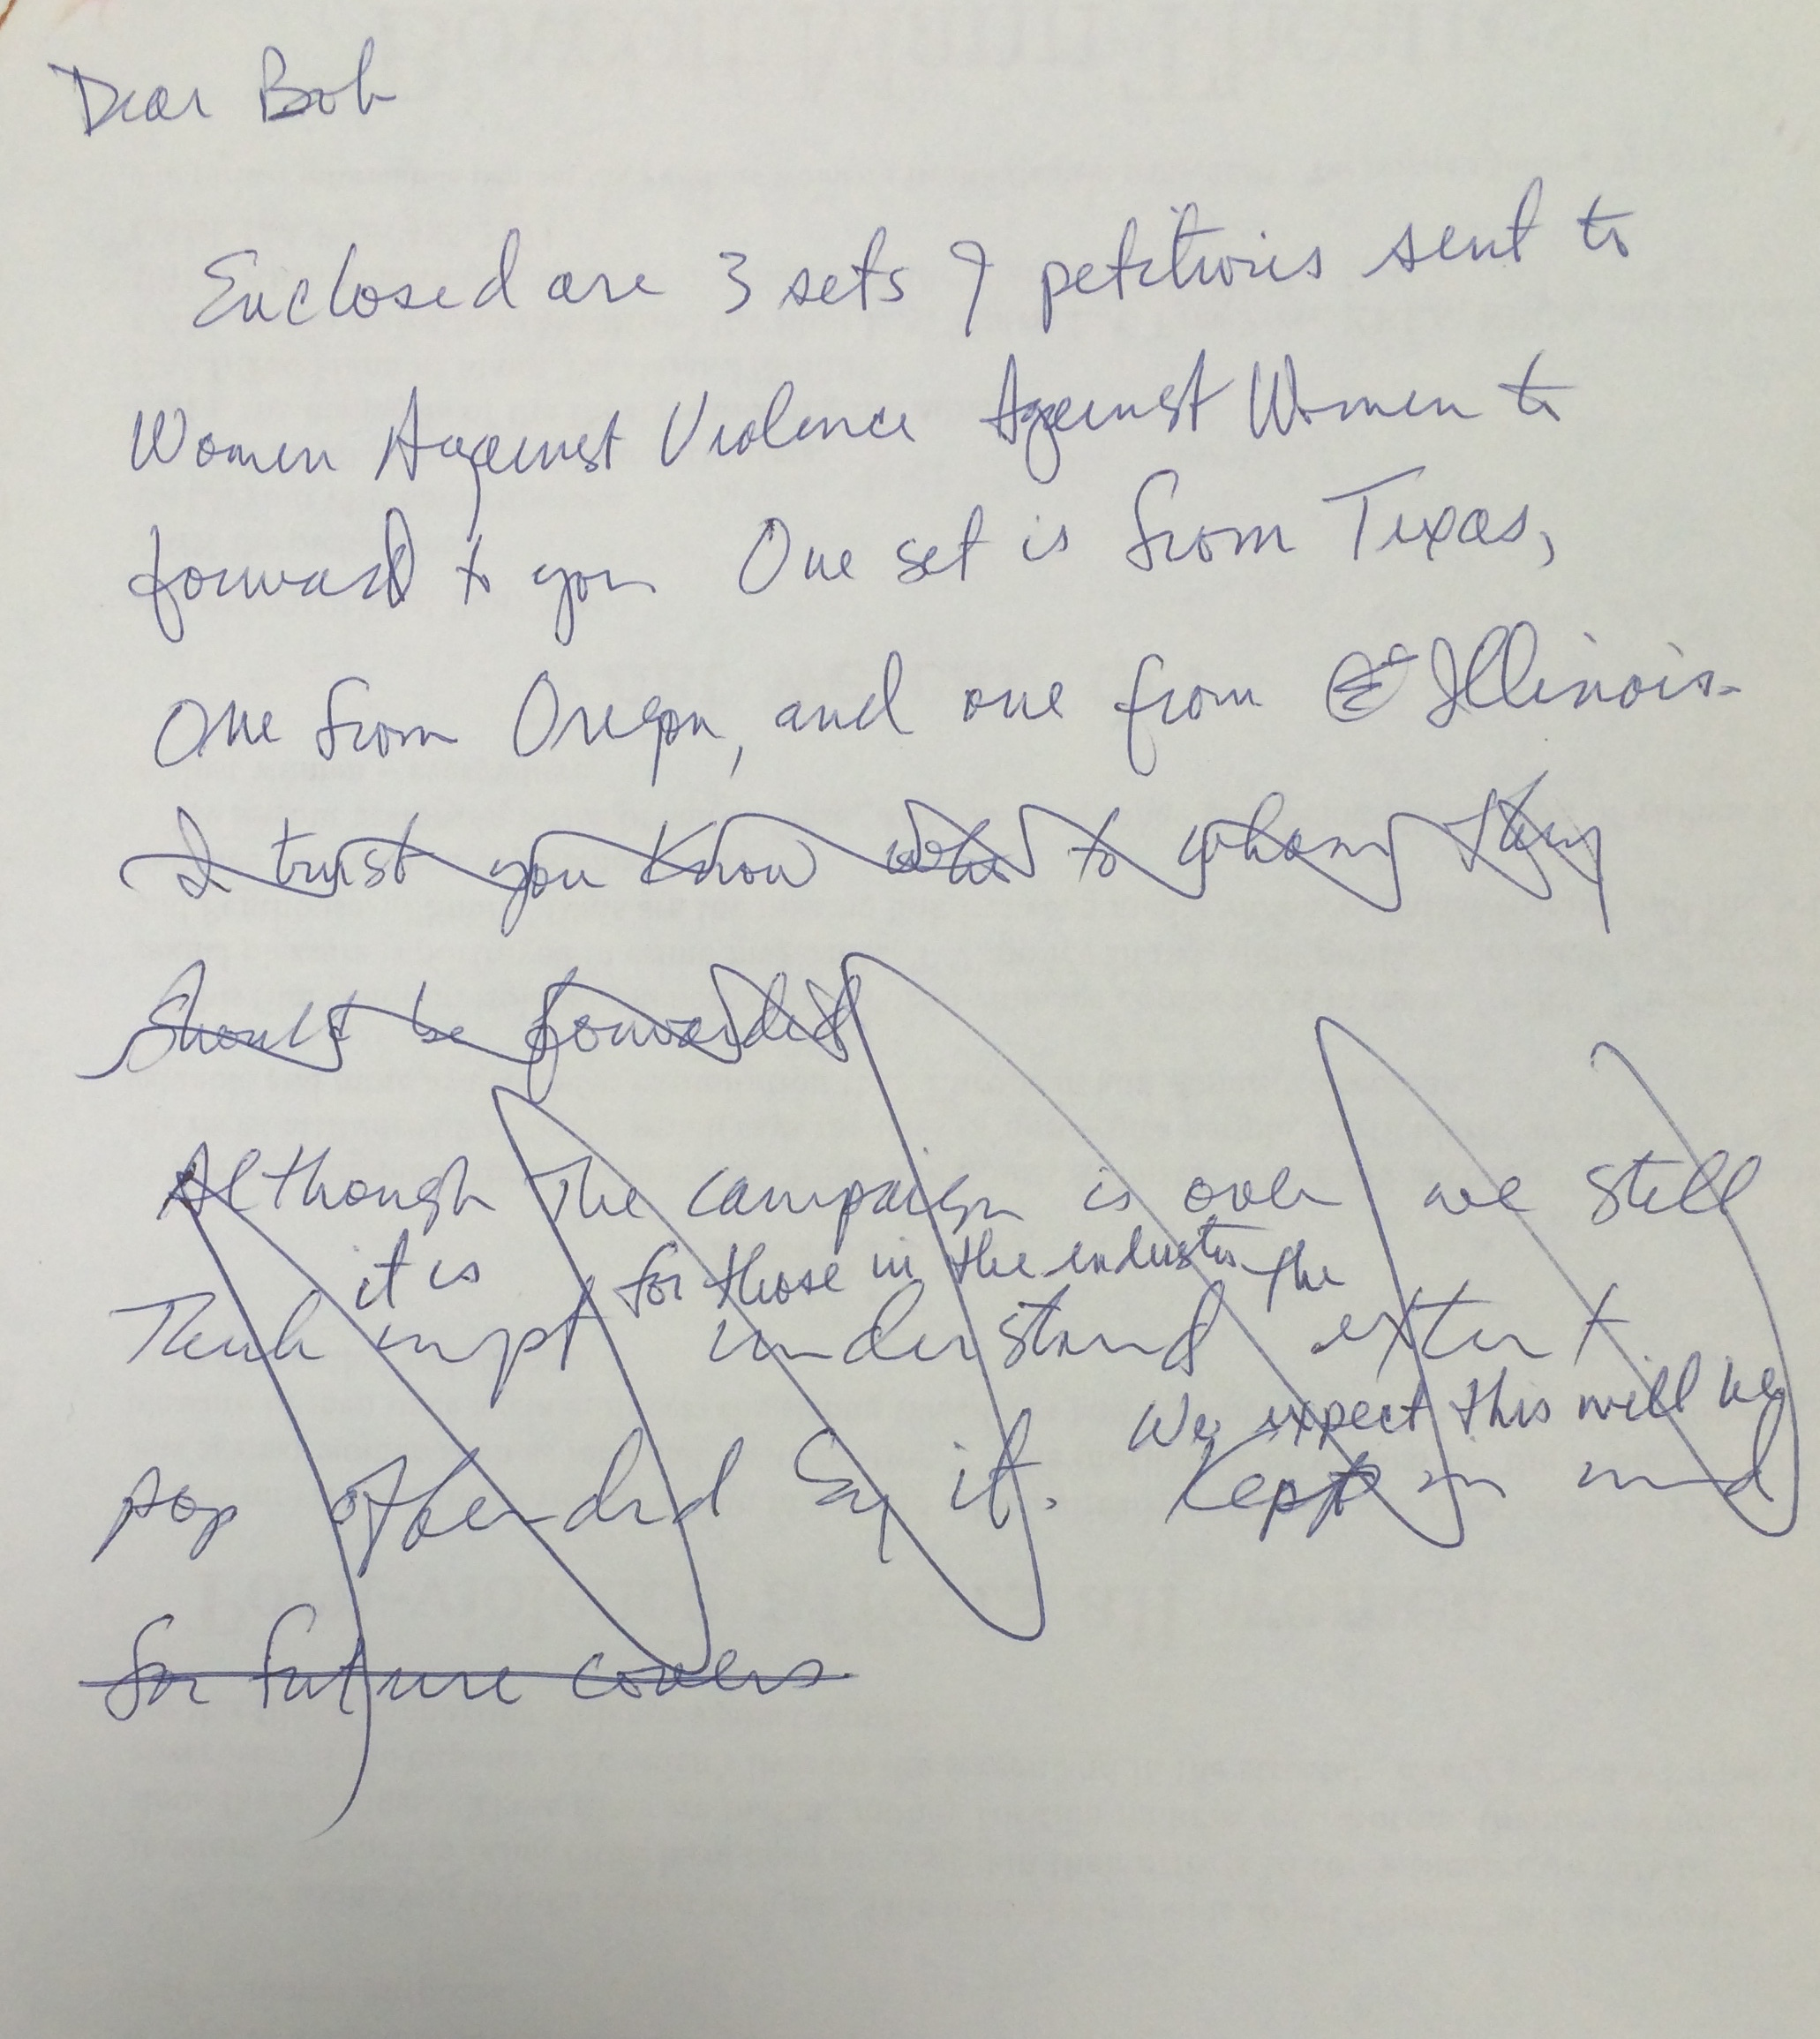 Dear Bob
Enclosed are 3 sets of petitions sent to
Women Against Violence Against Women to
forward to you One set is from Texas,
One from Oregon, and one from Illinois.
I trust you know to whom they
should be forwarded
Although the campaign is over we still
it is for those in the industry the
Think impt understand extent
We expect this will be
pop offended by it. Kept in mind
for future covers